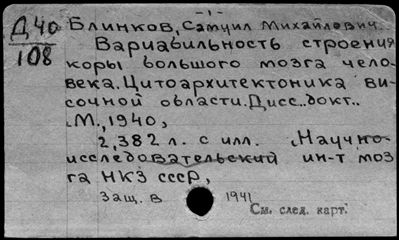 -1-
Д40
108
Блинков, Самуил Михайлович.
Вариабильность строения
коры большого мозга чело-
века. Цитоархитектоника ви-
сочной области. Дисс..докт..
М., 1940,
2,382 л. с илл. Научно-
исследовательский ин-т моз
га НКЗ СССР,
Защ. в 1941
См. след. карт.